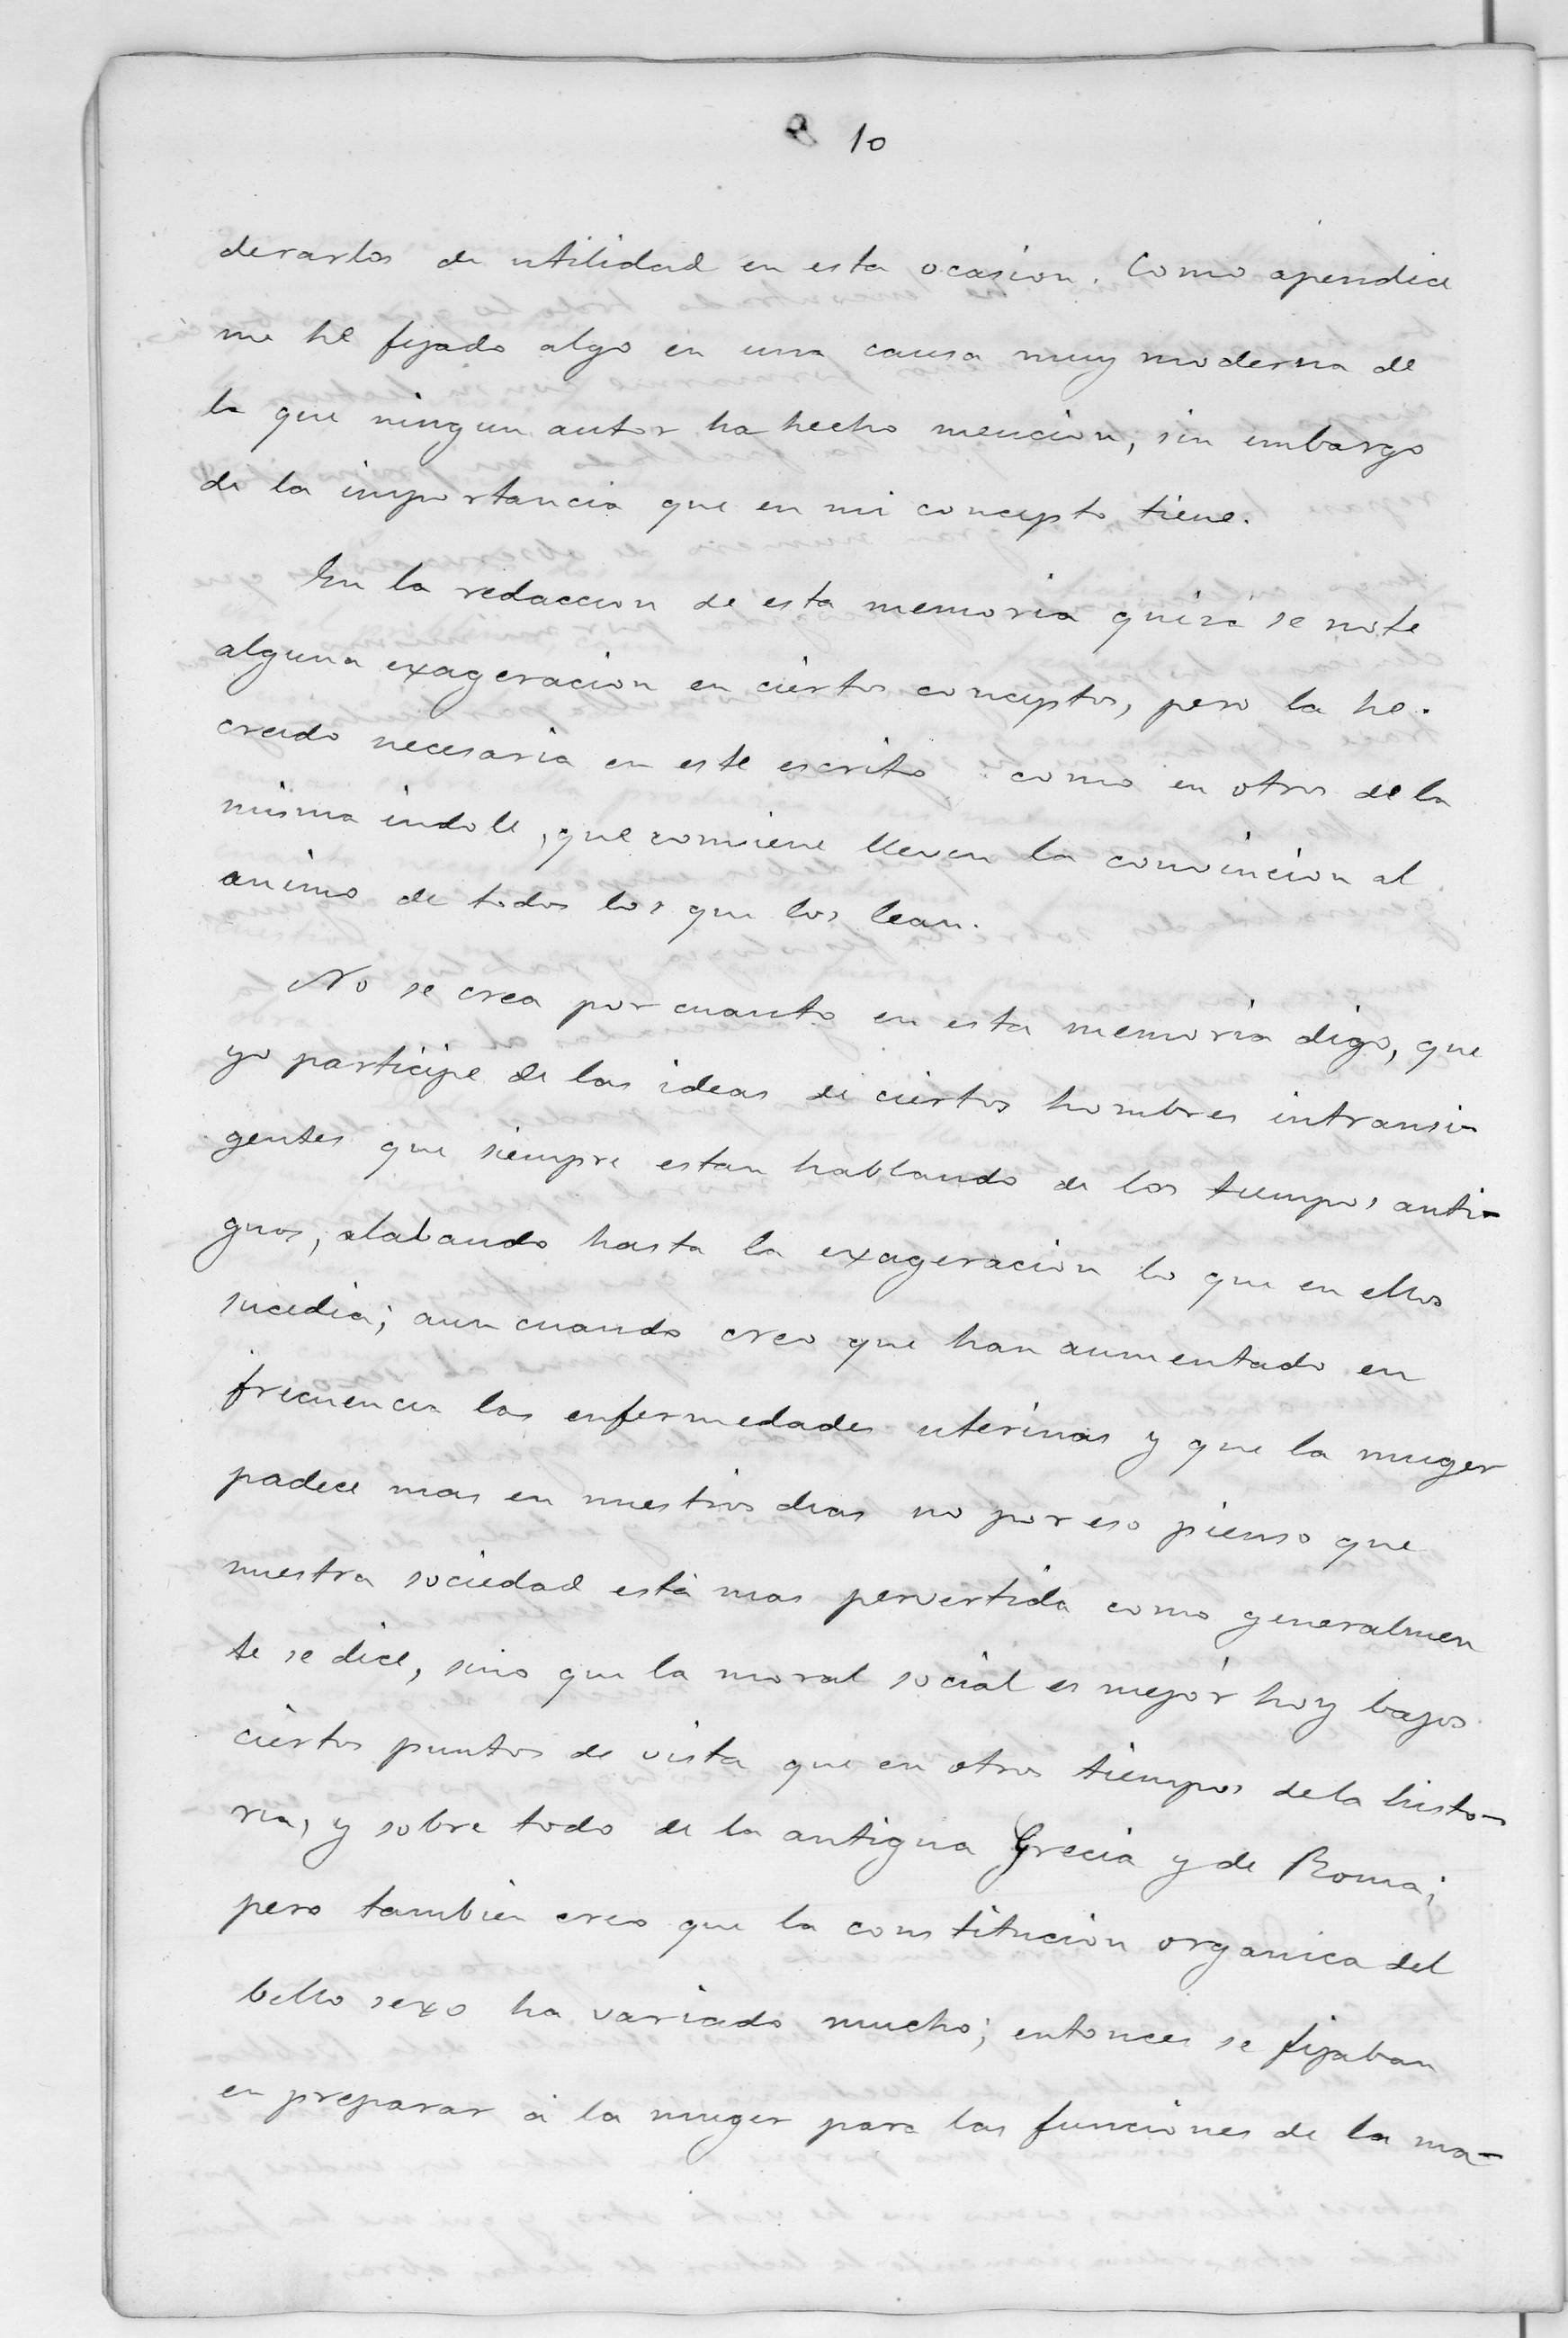 10
derarlos de utilidad en esta ocasion. Como apendice
me he fijado algo en una causa muy moderna de
la que ningun autor ha hecho mencion, sin embargo
de la importancia que en mi concepto tiene.
En la redaccion de esta memoria quizá se note
alguna exageracion en ciertos conceptos, pero la he
creido necesaria en este escrito como en otros de la
misma indole, que conviene lleven la convincion al
animo de todos los que los lean.
No se crea por cuanto en esta memoria digo, que
yo participe de las ideas de ciertos hombres intransi-
gentes que siempre estan hablando de los tiempos anti-
guos, alabando hasta la exageracion lo que en ellos
sucedia; aun cuando creo que han aumentado en
frecuencia las enfermedades uterinas y que la muger
padece mas en nuestros dias no por eso pienso que
nuestra sociedad está mas pervertida como generalmen
te se dice, sino que la moral social es mejor hoy bajos
ciertos puntos de vista que en otros tiempos de la histo-
ria, y sobre todo de la antigua Grecia y de Roma;
pero tambien creo que la constitucion organica del
bello sexo ha variado mucho; entonces se fijaban
en preparar á la muger para las funciones de la ma-